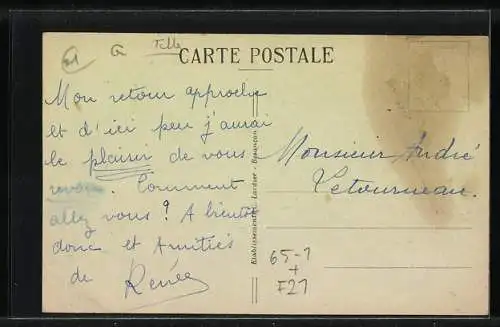 Felle
CARTE POSTALE
Mon retour approche
et d'ici peu j'aurai
le plaisir de vous
revoir. Comment
allez vous ? A bientôt
donc et Amitiés
de Renée
Monsieur André
Letourneau.
Etablissements C. Lardier - Besançon
65-1
+
F21